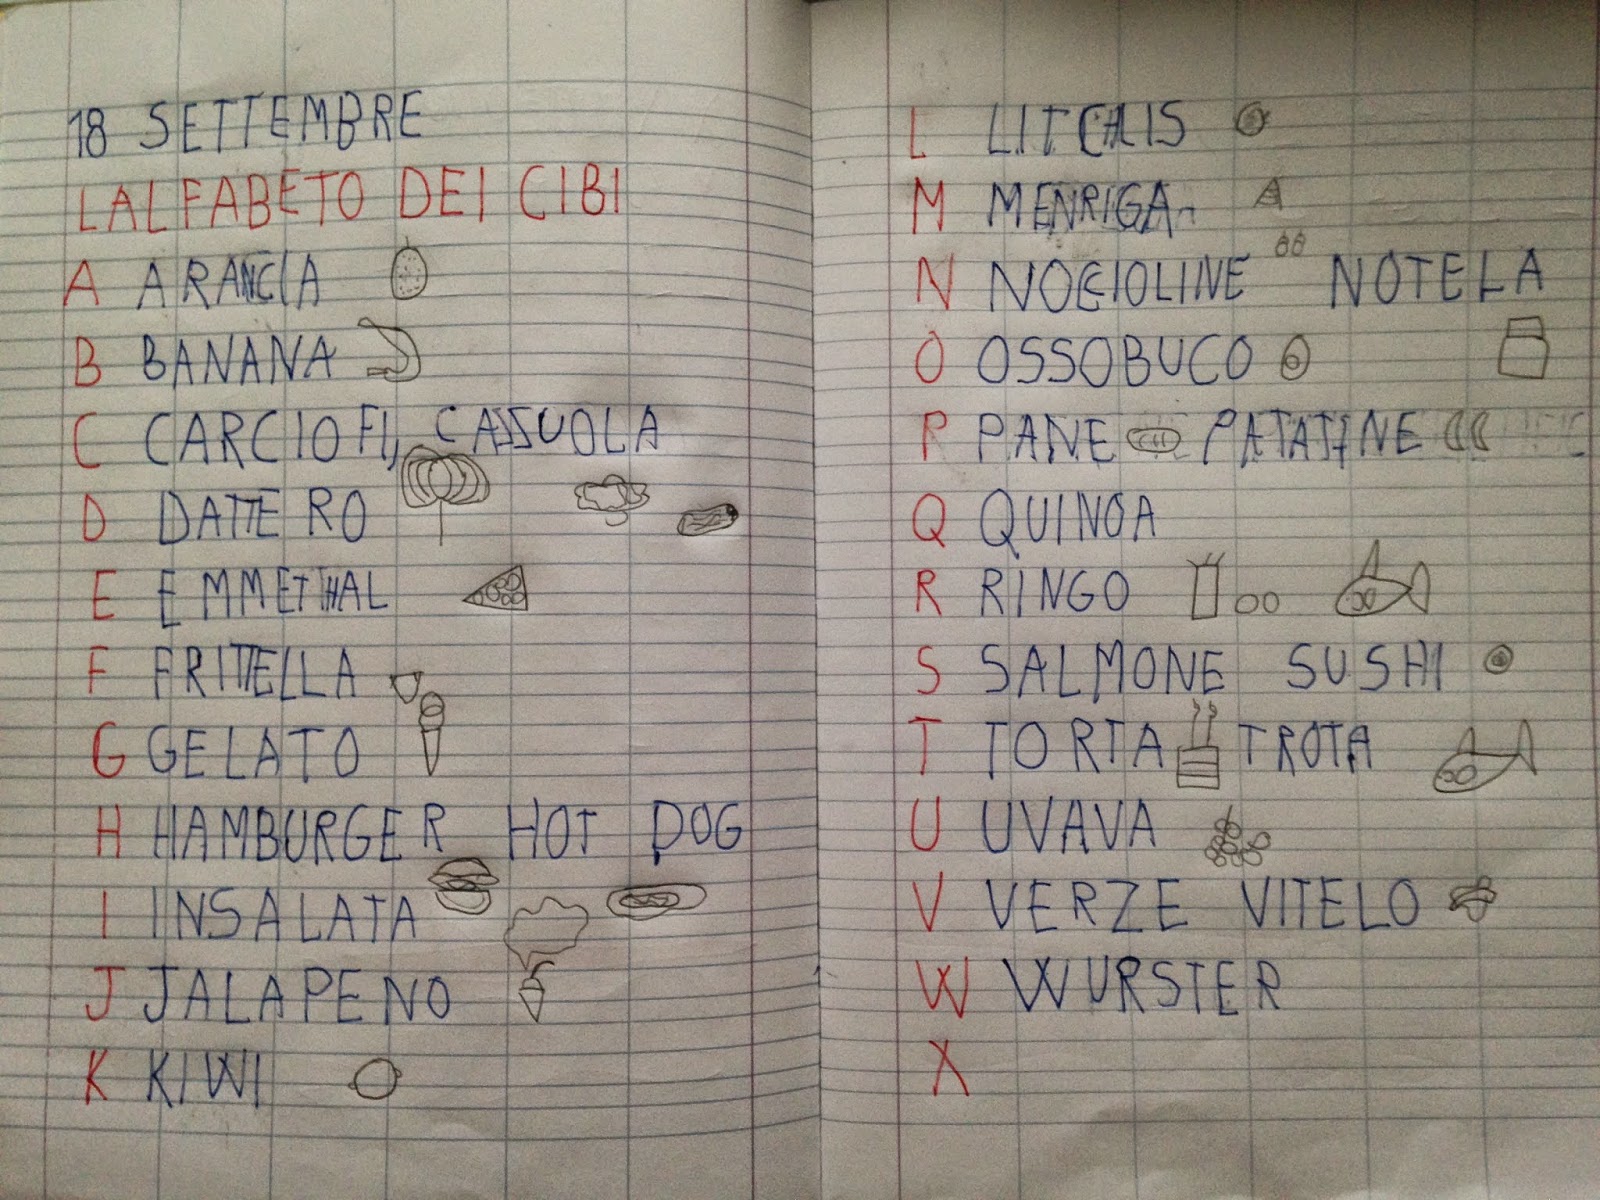 18 SETTEMBRE
LALFABETO DEI CIBI
A ARANCIA
B BANANA
C CARCIOFI, CASSUOLA
D DATTERO
E EMMETHAL
F FRITTELLA
G GELATO
H HAMBURGER HOT DOG
I INSALATA
J JALAPENO
K KIWI
L LITCHIS
M MENRIGA
N NOCCIOLINE NOTELA
O OSSOBUCO
P PANE PATATINE
Q QUINOA
R RINGO
S SALMONE SUSHI
T TORTA TROTA
U UVAVA
V VERZE VITELO
W WURSTER
X